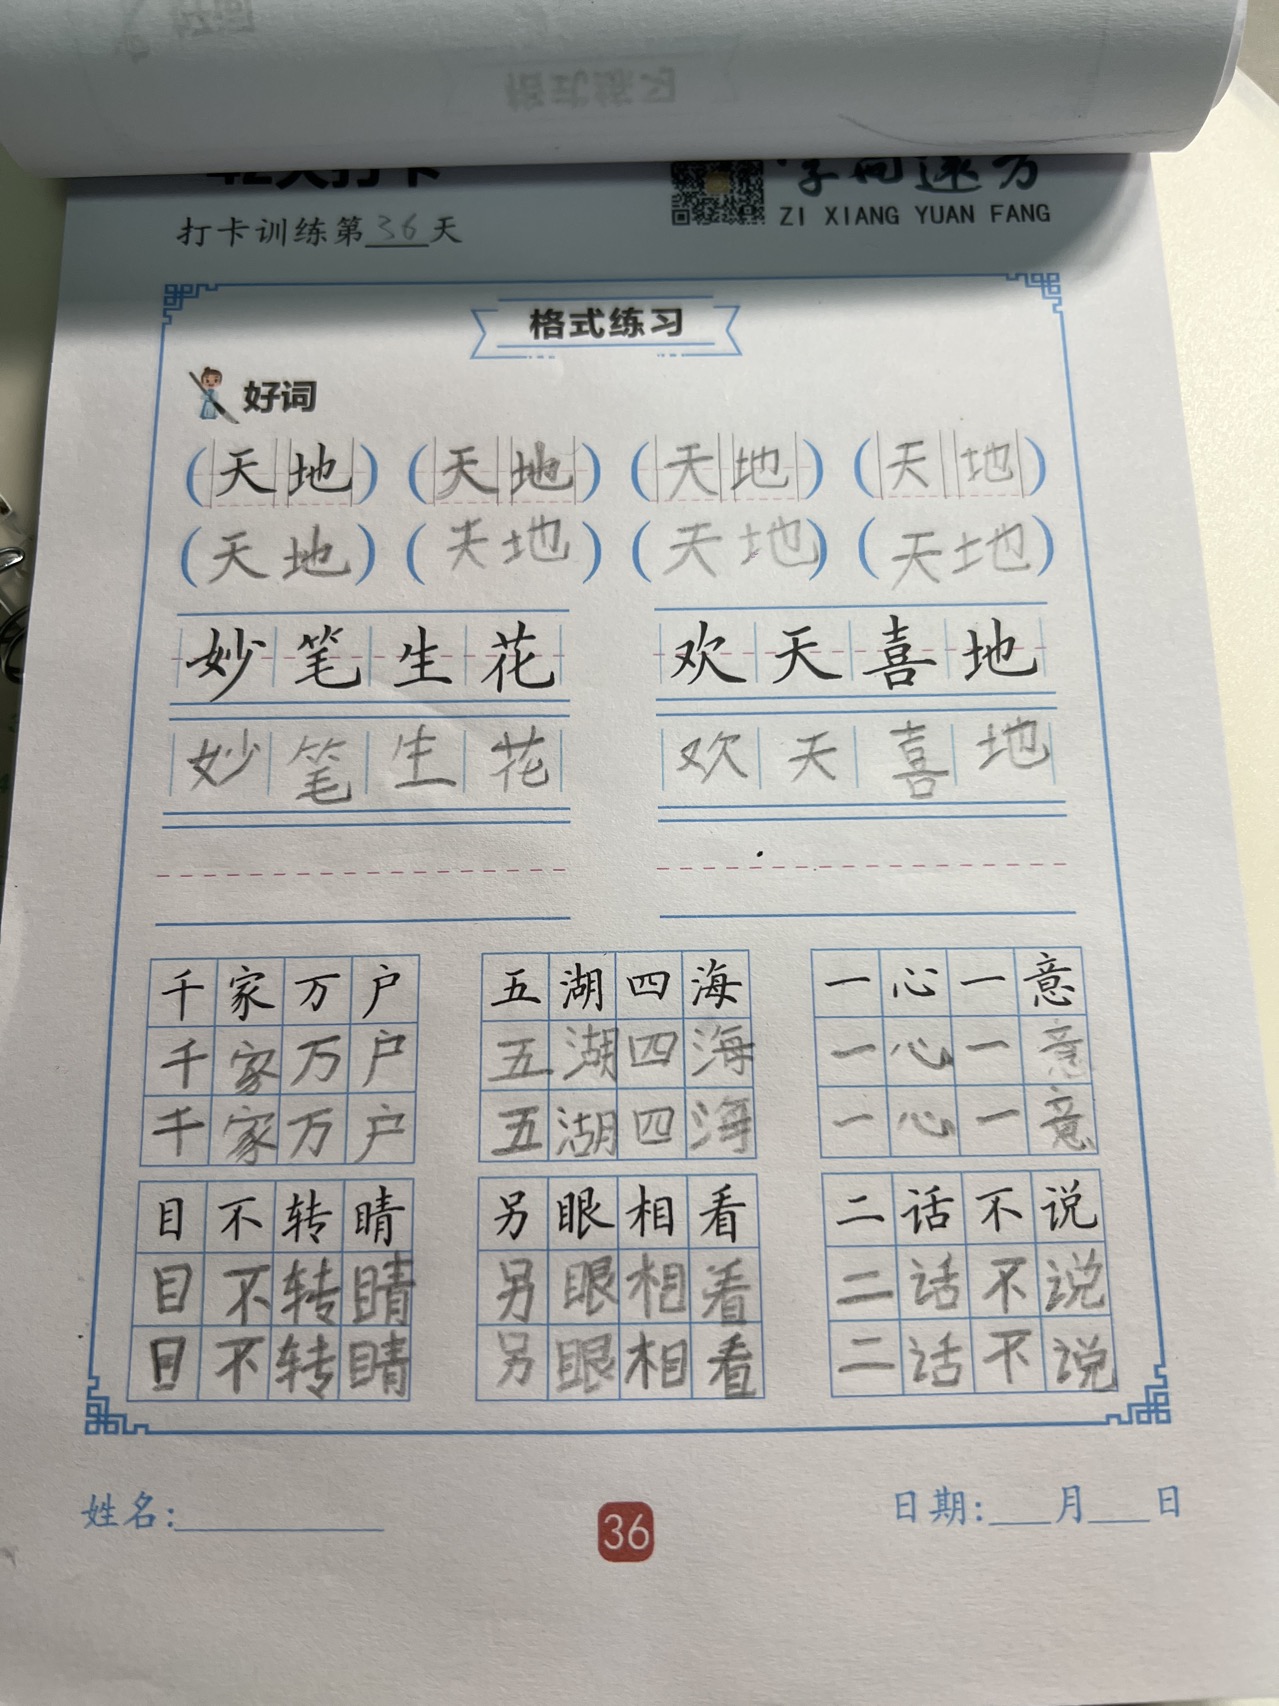 42天打卡
字向远方
ZI XIANG YUAN FANG
打卡训练第36天
格式练习
好词
(天地) (天地) (天地) (天地)
(天地) (天地) (天地) (天地)
妙笔生花 欢天喜地
妙笔生花 欢天喜地
千家万户 五湖四海 一心一意
千家万户 五湖四海 一心一意
千家万户 五湖四海 一心一意
目不转睛 另眼相看 二话不说
目不转睛 另眼相看 二话不说
目不转睛 另眼相看 二话不说
姓名:________ 36 日期:___月___日